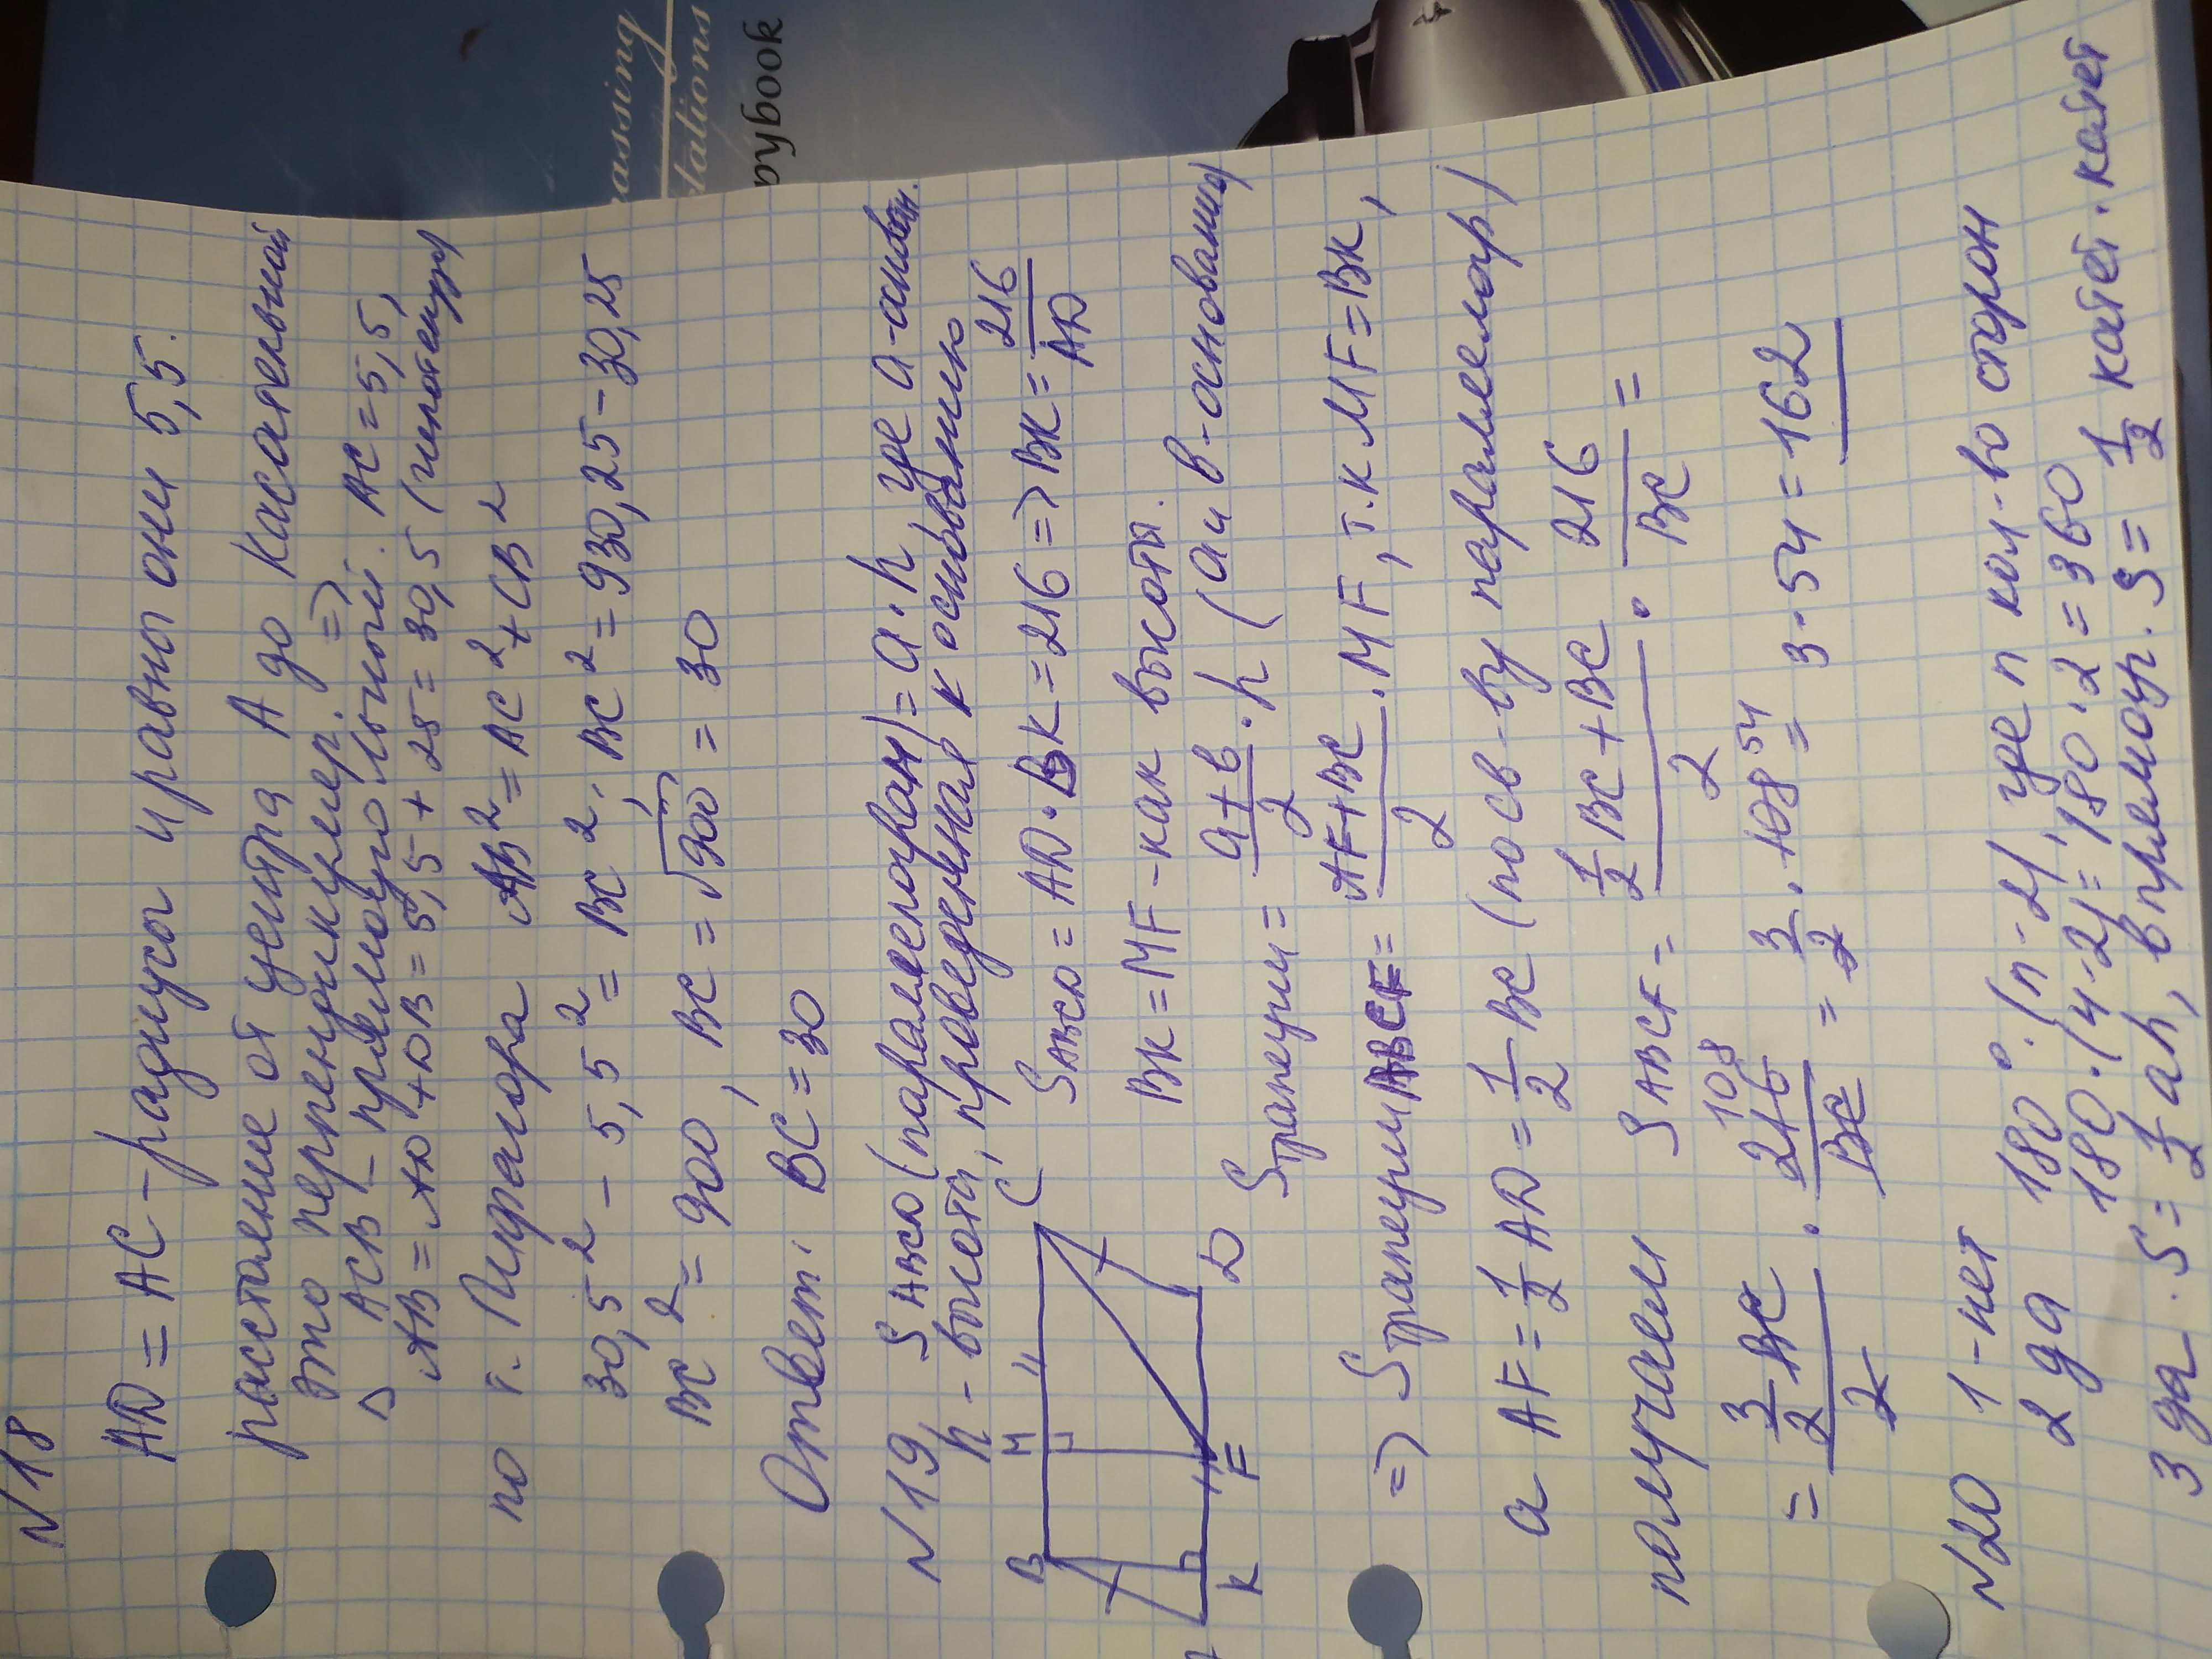 N 18
AD = AC - радиусы и равны они 5,5.
расстояние от центра А до касательной
это перпендикуляр. =>
△ ACB - прямоугольный. AC = 5,5,
AB = AD + DB = 5,5 + 25 = 30,5 (гипотенуза)
по т. Пифагора AB² = AC² + CB²
30,5² - 5,5² = BC², BC² = 930,25 - 30,25
BC² = 900, BC = √900 = 30
Ответ: BC = 30
N 19 S ABCD (параллелограм) = a · h где a - основан.
h - высота, проведенная к основанию
S ABCD = AD · BK = 216 => BK = 216/AD
B M C
K F D
BK = MF - как высоты.
S трапеции = (a + b)/2 · h (a и b - основания)
=> S трапеции ABCF = (AF + BC)/2 · MF, т.к MF = BK,
a AF = 1/2 AD = 1/2 BC (по св-ву параллелогр)
получаем S ABCF = (1/2 BC + BC)/2 · 216/BC =
= (3/2 BC)/2 · 216/BC 108 = 3/2 · 108 54 = 3 · 54 = 162
N 20 1 - нет
2 да 180° · (n - 2), где n кол-во сторон
180 · (4 - 2) = 180 · 2 = 360
3 да. S = 1/2 ah, в прямоуг. S = 1/2 катет · катет
assing
lations
pybook